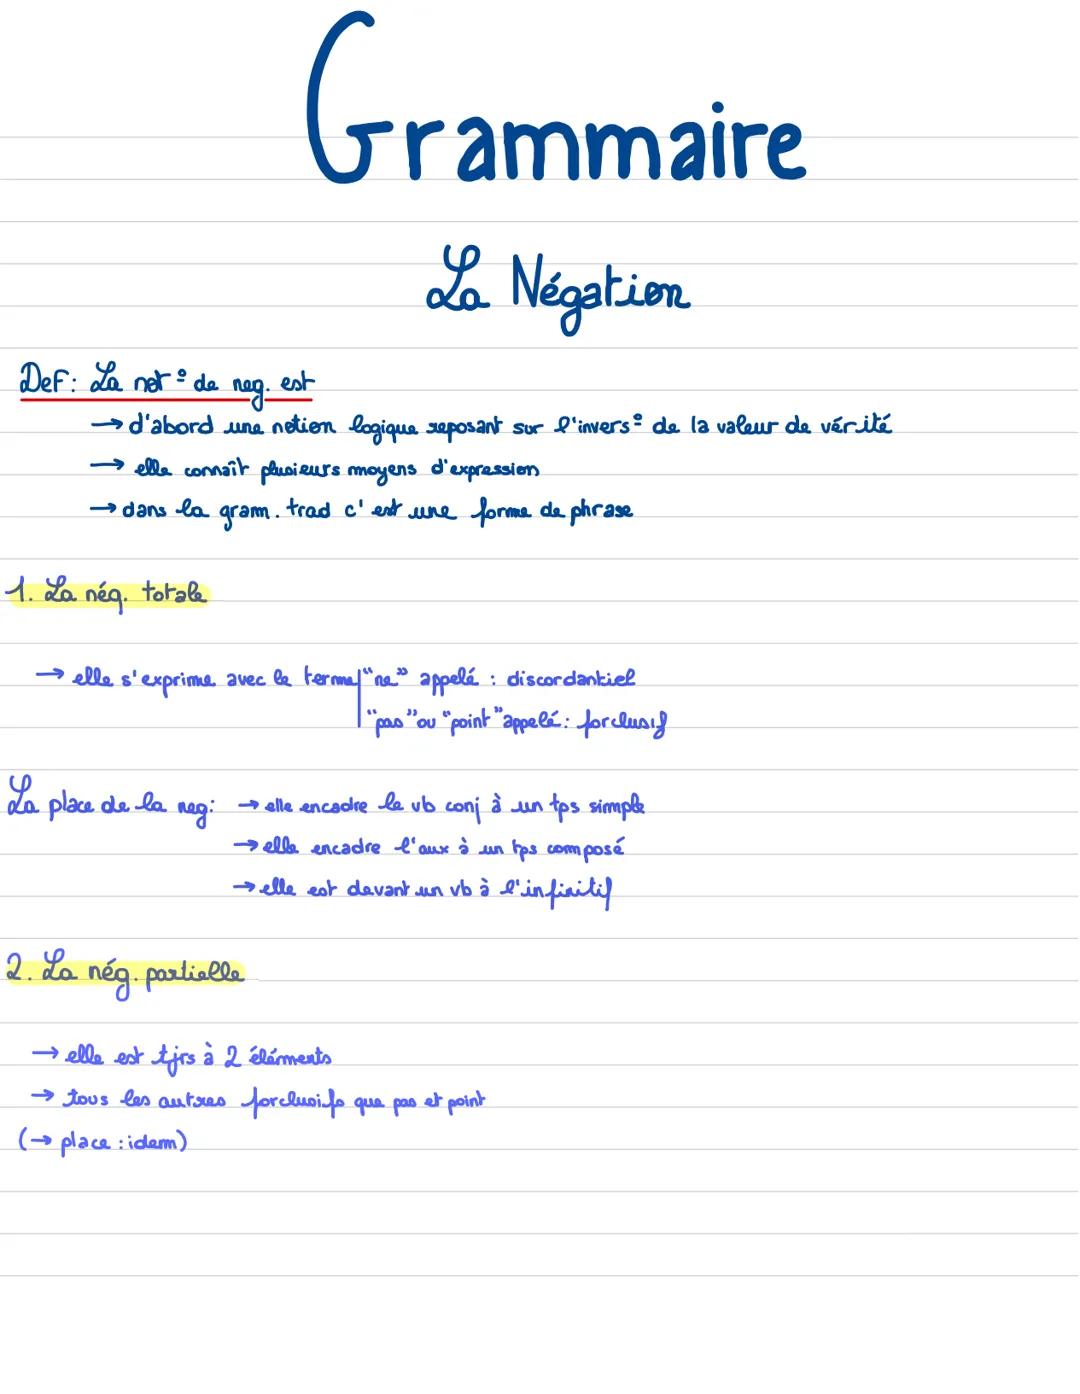 Grammaire
La Négation
Def: La not° de neg. est
→ d'abord une notion logique reposant sur l'invers° de la valeur de vérité
→ elle connaît plusieurs moyens d'expression
→ dans la gram. trad c'est une forme de phrase
1. La nég. totale
→ elle s'exprime avec le terme "ne" appelé : discordantiel
"pas" ou "point" appelé : forclusif
La place de la neg: → elle encadre le vb conj à un tps simple
→ elle encadre l'aux à un tps composé
→ elle est devant un vb à l'infinitif
2. La nég. partielle
→ elle est tjrs à 2 éléments
→ tous les autres forclusifs que pas et point
(→ place : idem)